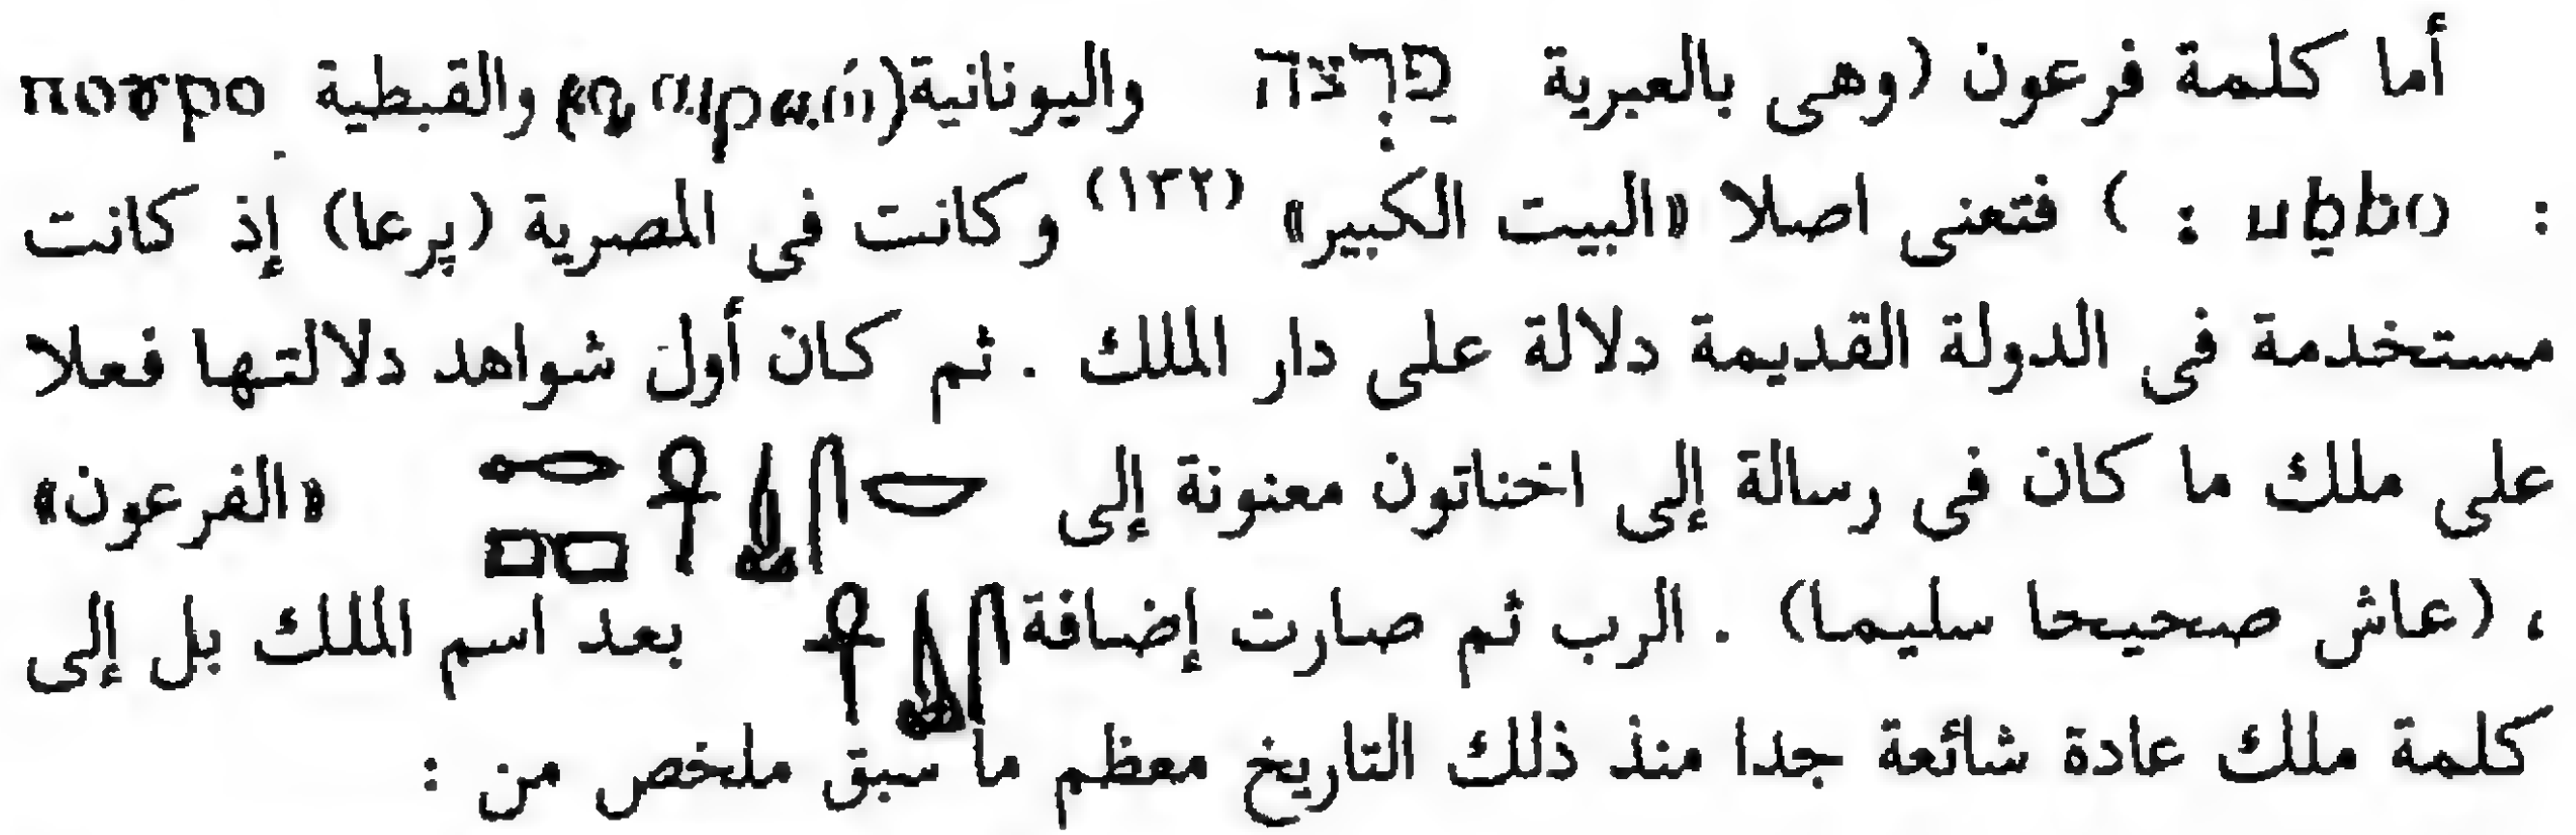 أما كلمة فرعون (وهى بالعبرية פַרְצה واليونانية( والقبطية πoγρo
: ) فتعنى اصلا «البيت الكبير» (١٣٢) وكانت فى المصرية (پرعا) إذ كانت
مستخدمة فى الدولة القديمة دلالة على دار الملك . ثم كان أول شواهد دلالتها فعلا
على ملك ما كان فى رسالة إلى اخناتون معنونة إلى «الفرعون»
، (عاش صحيحا سليما) . الرب ثم صارت إضافة بعد اسم الملك بل إلى
كلمة ملك عادة شائعة جدا منذ ذلك التاريخ معظم ما سبق ملخص من :